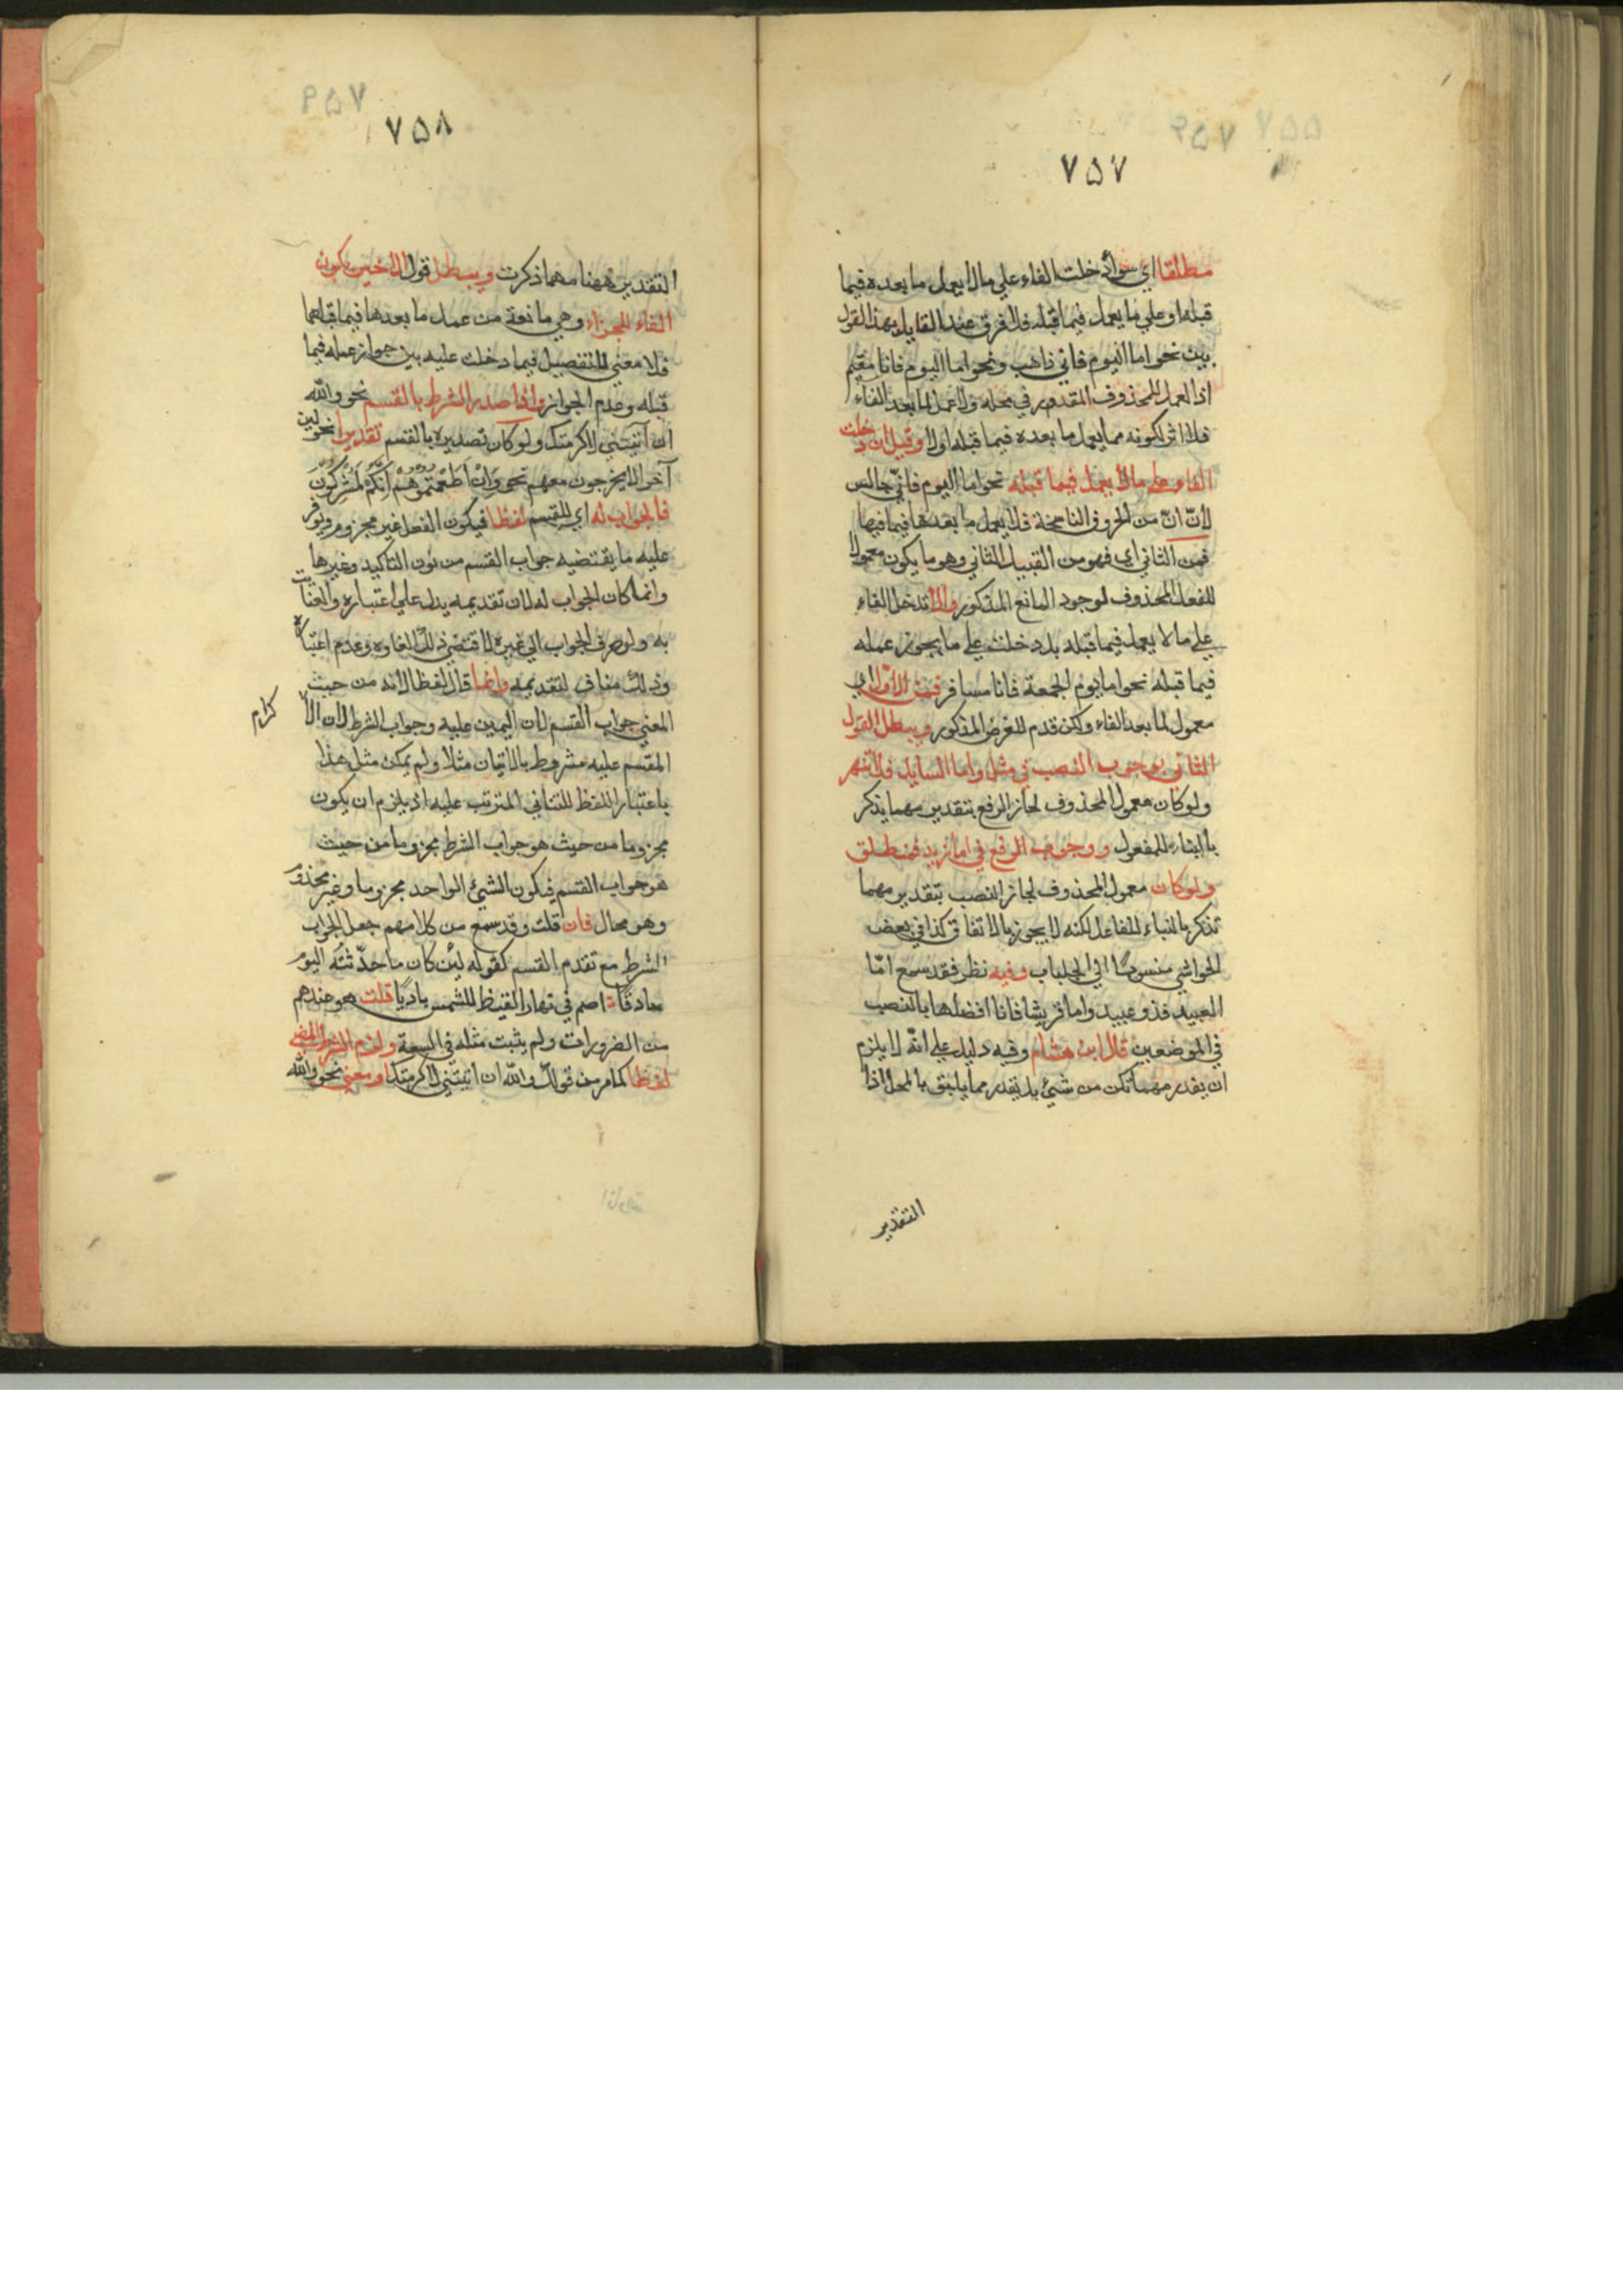 ٧٥٧
مطلقا اي سواء دخلت الفاء علي ما لا يعمل ما بعده فيما
قبله او علي ما يعمل فيما قبله فلا فرق عند القايل بهذا القول
بين نحو اما اليوم فاني ذاهب ونحو اما اليوم فانا مقيم
اذ العمل للمحذوف المقدور في محله ولا عمل لما بعد الفاء
فلا اثر لكونه مما يعمل ما بعده فيما قبله او لا وقيل ان دخلت
الفاء علي ما لا يعمل فيما قبله نحو اما اليوم فانّي جالس
لانّ انّ من الحروف الناسخة فلا يعمل ما بعدها فيما قبلها
فمن الثاني اي فهو من القبيل الثاني وهو ما يكون معمولا
للفعل المحذوف لوجود المانع المذكور والا تدخل الفاء
علي ما لا يعمل فيما قبله بل دخلت علي ما يجوز عمله
فيما قبله نحو اما يوم الجمعة فانا مسافر فمن الاول اي
معمول لما بعد الفاء ولكن قدم للغرض المذكور ويبطل القول
الثاني بوجوب النصب في مثل واما السايل فلا تنهر
ولو كان معمول المحذوف لجاز الرفع بتقدير مهما يذكر
بالبناء للمفعول ووجوب الرفع في اما زيد فمنطلق
ولو كان معمول المحذوف لجاز النصب بتقدير مهما
تذكر بالبناء للفاعل لكنه لا يجوز بالاتفاق كذا في بعض
الحواشي منسوبًا الي الجلباب وفيه نظر فقد سمع امّا
العبيد فذو عبيد واما قريشا فانا افضلها بالنصب
في الموضعين قال ابن هشام وفيه دليل علي انّه لا يلزم
ان يقدر مهما تكن من شيئ بل يقدر مما يليق بالمحل اذا
التقدير
٧٥٨
التقدير ههنا مهما ذكرت ويبطل قول الاخير بكون
الفاء للجزاء وهي مانعة من عمل ما بعدها فيما قبلها
فلا معني للتفصيل فيما دخلت عليه بين جواز عمله فيما
قبله وعدم الجواز واذا صدر الشرط بالقسم نحو والله
ان اتيتني لاكرمتك ولو كان تصديره بالقسم تقديرا نحو لئن
آخرجوا لا يخرجون معهم نحو وَاِنْ اَطَعْتُمُوْهُمْ اِنَّكُمْ لَمُشْرِكُوْنَ
فالجواب له اي للقسم لفظا فيكون الفعل غير مجزوم ويوفر
عليه ما يقتضيه جواب القسم من نون التاكيد وغيرها
وانما كان الجواب له لان تقديمه يدل علي اعتباره والعناية
به ولو صرف الجواب الي غيره لاقتضي ذلك الغاءه وعدم اعتباره
وذلك مناف لتقديمه وانما قال لفظا لانه من حيث
المعني جواب القسم لان اليمين عليه وجواب الشرط لان الا
كرام
المقسم عليه مشروط بالاتيان مثلا ولم يمكن مثل هذا
باعتبار اللفظ للتنافي المترتب عليه اذ يلزم ان يكون
مجزوما من حيث هو جواب الشرط مجزوما من حيث
هو جواب القسم فيكون الشيئ الواحد مجزوما وغير مجذوم
وهو محال فان قلت وقد سمع من كلامهم جعل الجواب
الشرط مع تقدم القسم كقوله لئن كان ما حدّثته اليوم
صادقا اصم في نهار القيظ للشمس باديًا قلت هو عندهم
من الضرورات ولم يثبت مثله في السعة ولزم الشرط المضي
لفظا كما مر من قولك والله ان اتيتني لاكرمتك او معني نحو والله